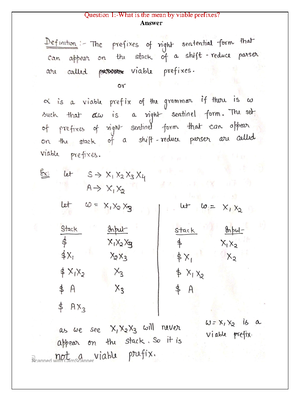 Question 1:-What is the mean by viable prefixes?
Answer
Definition :- The prefixes of right sentential form that
can appear on the stack of a shift-reduce parser
are called viable prefixes.
or
α is a viable prefix of the grammar if there is ω
such that αω is a right sentinel form. The set
of prefixes of right sentinel form that can appear
on the stack of a shift-reduce parser are called
viable prefixes.
Ex: let S → X₁ X₂ X₃ X₄
A → X₁ X₂
let ω = X₁ X₂ X₃
Stack Input
$ X₁X₂X₃
$X₁ X₂X₃
$X₁X₂ X₃
$ A X₃
$ AX₃
as we see X₁X₂X₃ will never
appear on the stack. So it is
not a viable prefix.
let ω = X₁ X₂
Stack Input
$ X₁X₂
$ X₁ X₂
$ X₁ X₂
$ A
ω = X₁ X₂ is a
viable prefix